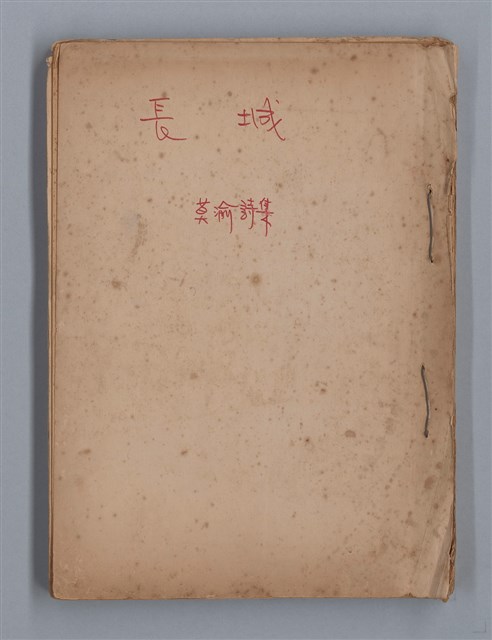 長城
莫渝詩集